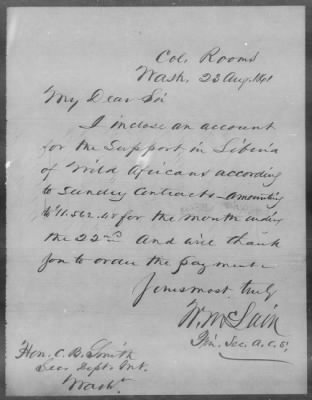 Col. Rooms
Wash. 23 Aug. 1861
My Dear Sir
I inclose an account
for the Support in Liberia
of Wild Africans according
to Sunday Contracts - amounting
to for the month ending
the 22nd. And will thank
you to order the payment.
Yours most truly
W. McLain
Fin. Sec. A. C. S.
Hon. C. B. Smith
Secr. Dept. Int.
Wash.